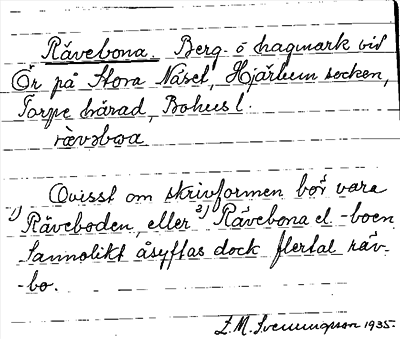 Rävebona. Berg- o hagmark vid
Ör på Stora Näset, Hjärtum socken,
Torpe härad, Bohusl.
rävəbωa
Ovisst om skrivformen bör vara
1) Räveboden, eller 2) Rävebona el -boen
Sannolikt åsyftas dock flertal räv-
-bo.
L. M. Svenungsson 1935.